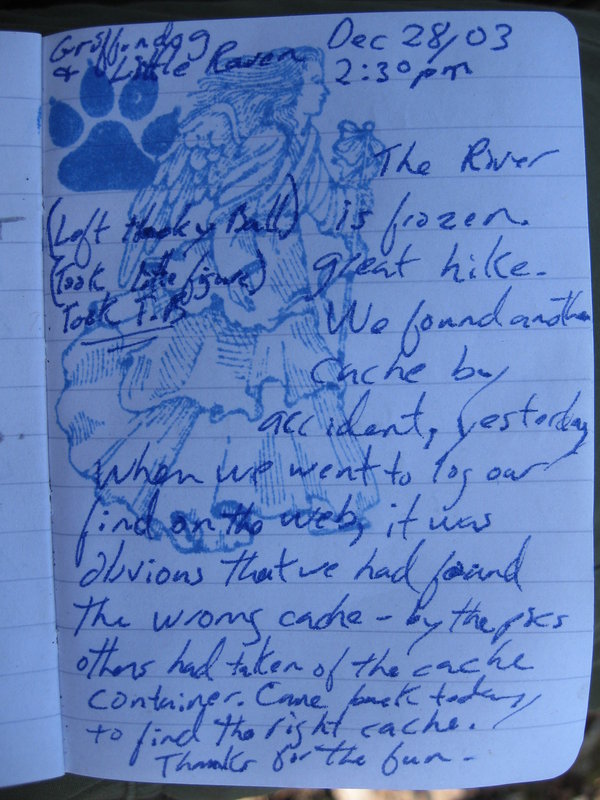 Gryffindog
& Little Raven
Dec 28/03
2:30 pm
(Left Hacky Ball)
(Took little figure)
Took T.B
The River
is frozen.
great hike.
We found another
cache by
accident, yesterday
when we went to log our
find on the web, it was
obvious that we had found
the wrong cache - by the pics
others had taken of the cache
container. Came back today,
to find the right cache.
Thanks for the fun -